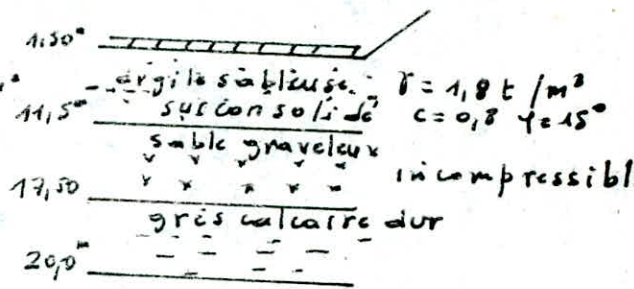 1,50ᵐ
argile sableuse γ = 1,8 t/m³
11,5ᵐ surconsolidé c = 0,8 φ = 15°
sable graveleux
incompressibl
17,50
grès calcaire dur
20,0ᵐ